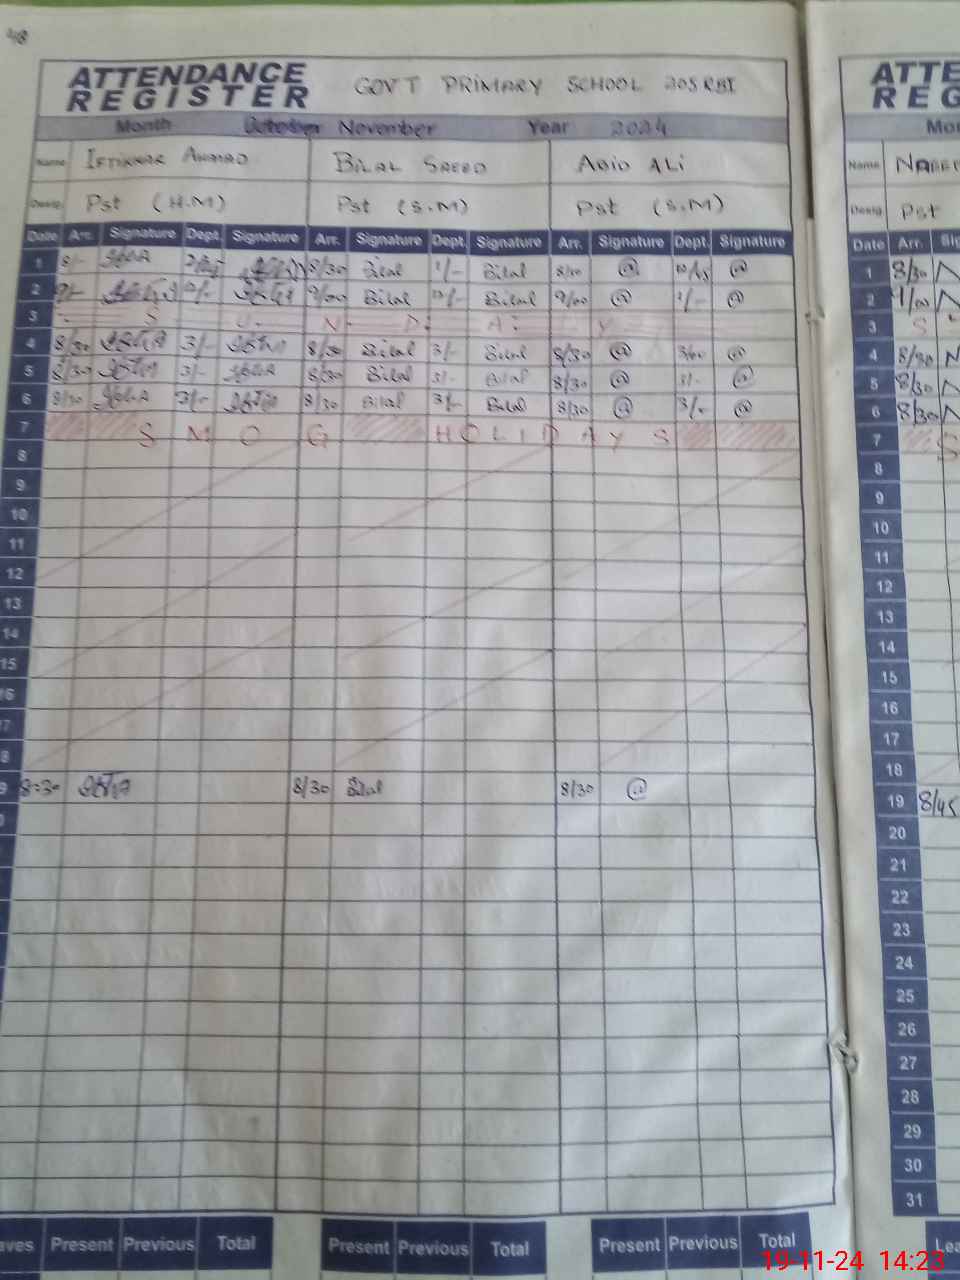 48
ATTENDANCE REGISTER GOVT PRIMARY SCHOOL 205 RBI ATTE
REG
Month November Year 2024 Mon
Name Iftikhar Ahmad Bilal Saeed Abid Ali Name
Desig Pst (H.M) Pst (S.M) Pst (S.M) Desig Pst
Date Arr. Signature Dept. Signature Arr. Signature Dept. Signature Arr. Signature Dept. Signature Date Arr. Sig
1 8/- 8/30 Bilal 1/- Bilal @ @ 1 8/30 N
2 9/- 9/00 Bilal Bilal 9/00 @ 1/- @ 2 N
3 S U N D A Y 3 S
4 8/30 3/- 8/30 Bilal 3/- Bilal 8/30 @ 3/00 @ 4 8/30 N
5 8/30 3/- 8/30 Bilal 3/- Bilal 8/30 @ 3/- @ 5 8/30 N
6 8/30 3/- 8/30 Bilal 3/- Bilal 8/30 @ 3/- @ 6 8/30 N
7 S M O G H O L I D A Y S 7 S
8 8
9 9
10 10
11 11
12 12
13 13
14 14
15 15
16 16
7 17
8 18
9 8:30 8/30 Bilal 8/30 @ 19 8/45
20
21
22
23
24
25
26
27
28
29
30
31
aves Present Previous Total Present Previous Total Present Previous Total Lea
19-11-24 14:23